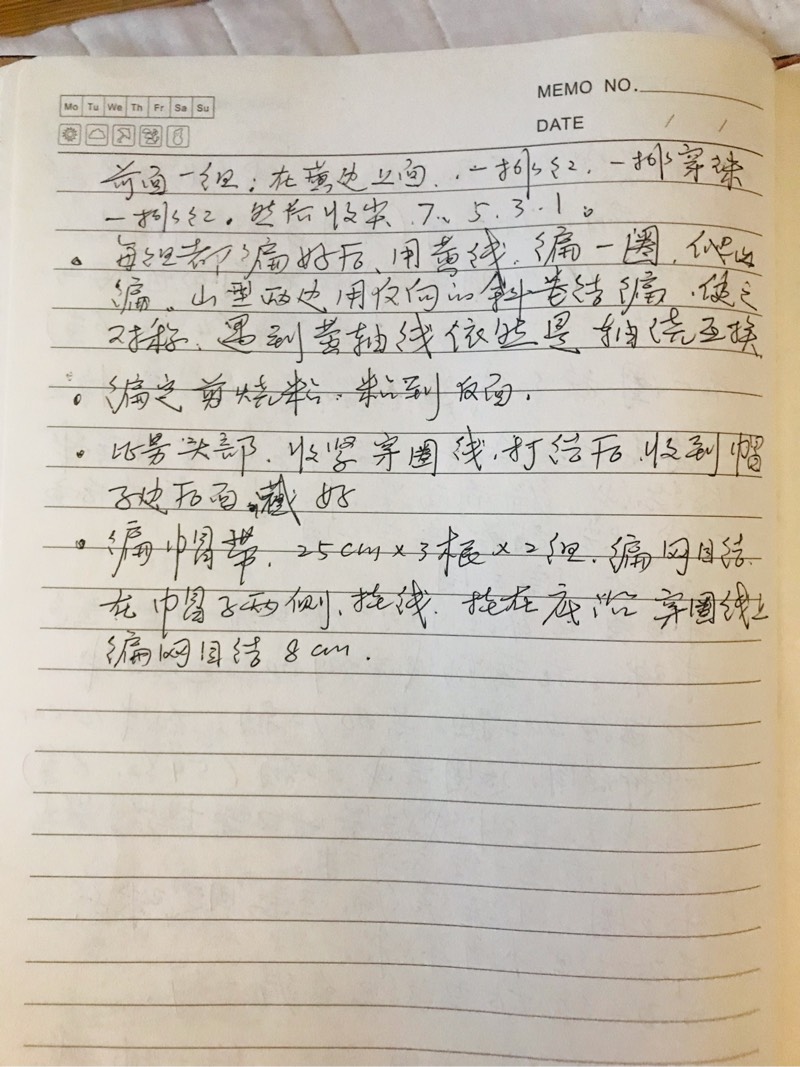 Mo Tu We Th Fr Sa Su
MEMO NO.
DATE / /
前面一组:在黄边上面.一排红.一排穿珠
一排红。然后收尖.7、5.3.1。
每组都编好后、用黄线.编一圈.爬山
编。山型两边用反向的斜卷结编.使之
对称、遇到黄轴线依然是 轴绕互换
编完剪烧粘.粘到反面.
比量头部.收紧穿圈线.打结后.收到帽
子边后面.藏好
编帽带.25cm×3根×2组.编网目结.
在帽子两侧.挂线.挂在底沿穿圈线上
编网目结8cm.